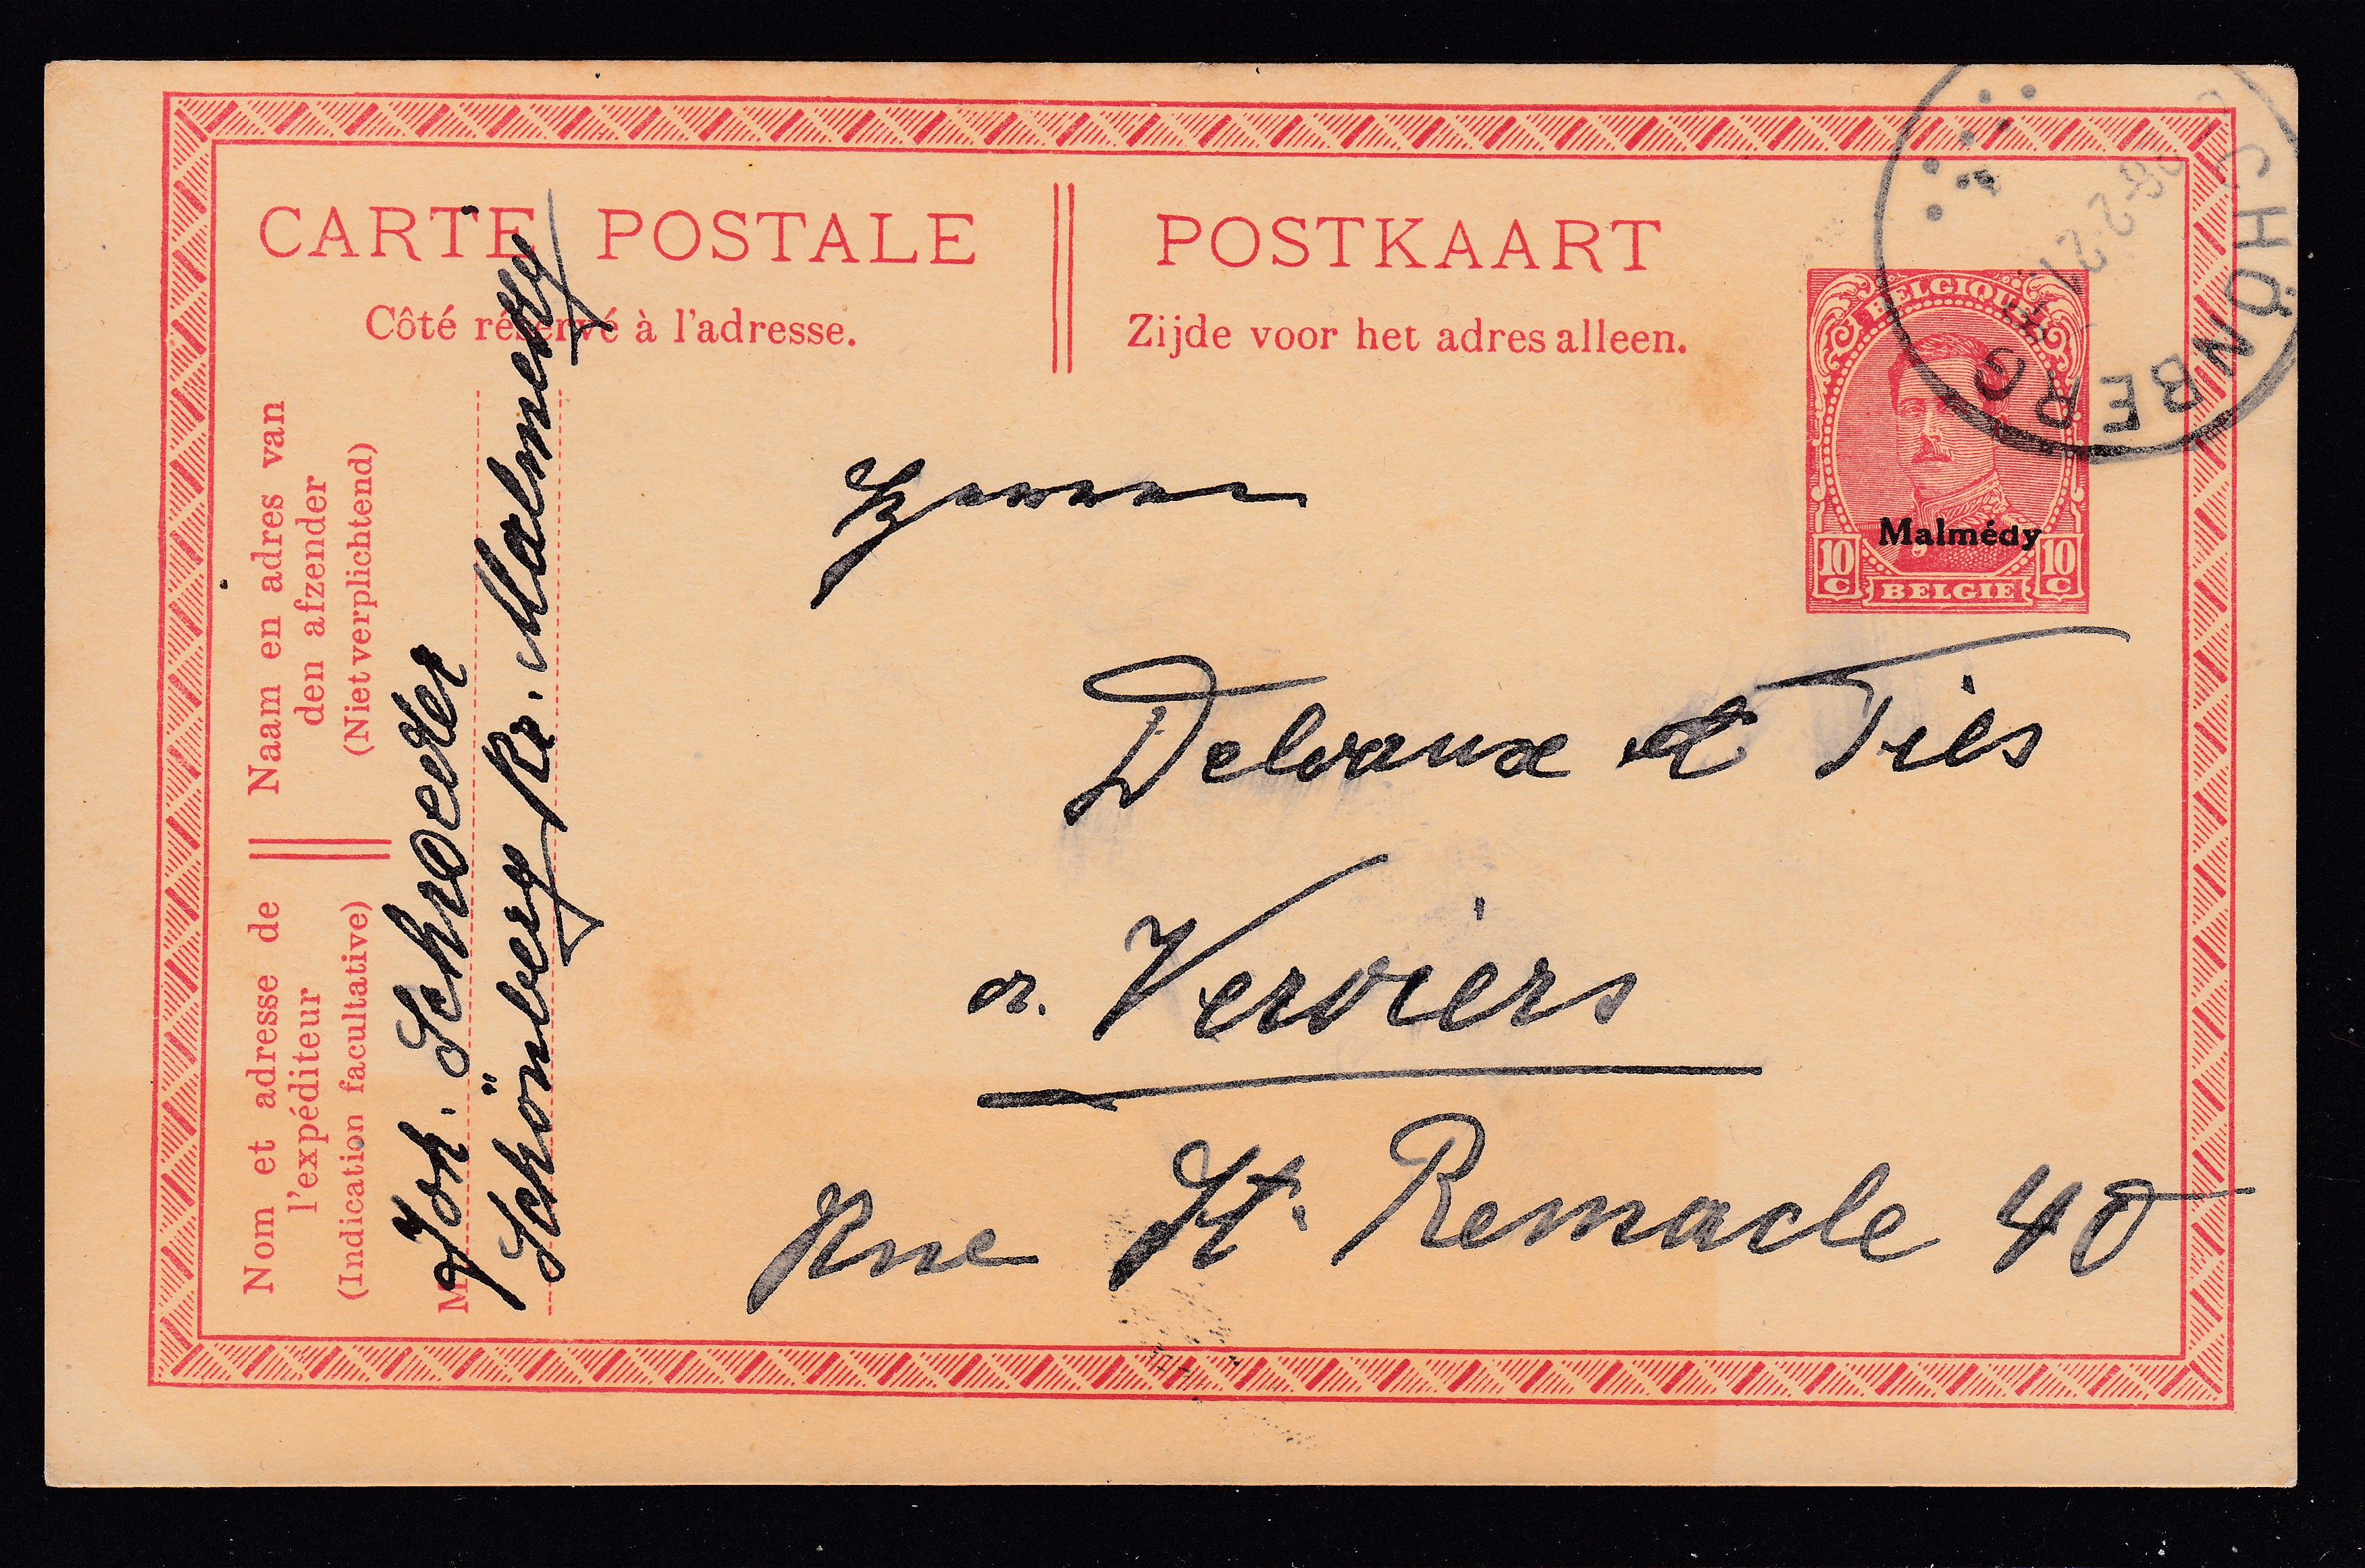 CARTE POSTALE
Côté réservé à l'adresse.
POSTKAART
Zijde voor het adres alleen.
SCHÖNBERG
BELGIQUE
Malmédy
10 C BELGIE 10 C
Naam en adres van
den afzender
(Niet verplichtend)
Nom et adresse de
l'expéditeur
(Indication facultative)
M
Joh. Schroeder
Schönberg Kr. Malmedy
Herren
Delvaux et Fils
Verviers
Rue St. Remacle 40